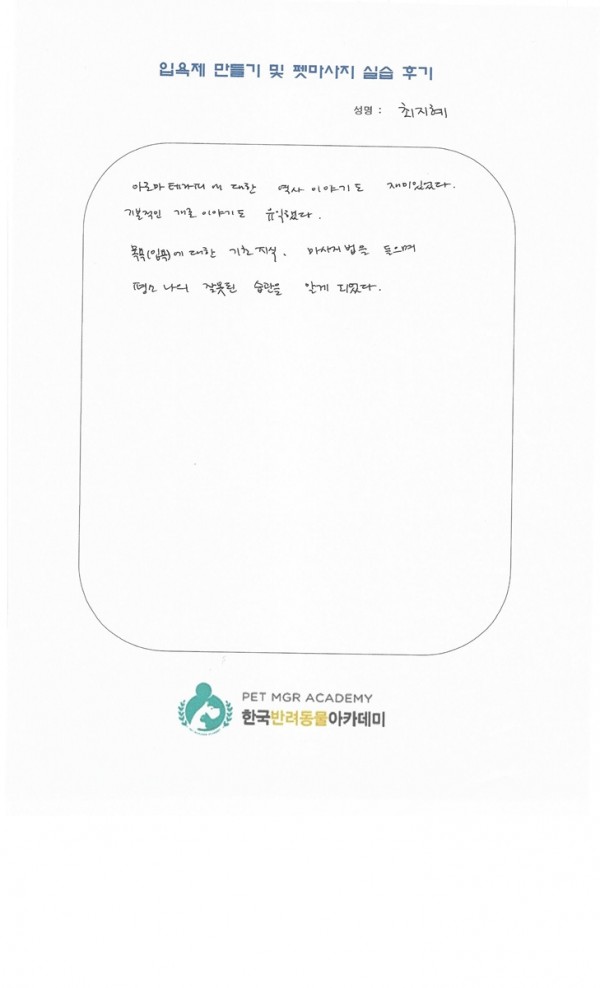 입욕제 만들기 및 펫마사지 실습 후기
성명 : 최지혜
아로마 테라피에 대한 역사 이야기도 재미있었다.
기본적인 개론 이야기도 유익했다.
목욕(입욕)에 대한 기초 지식, 마사지법을 들으며
평소 나의 잘못된 습관을 알게 되었다.
PET MGR ACADEMY
한국반려동물아카데미